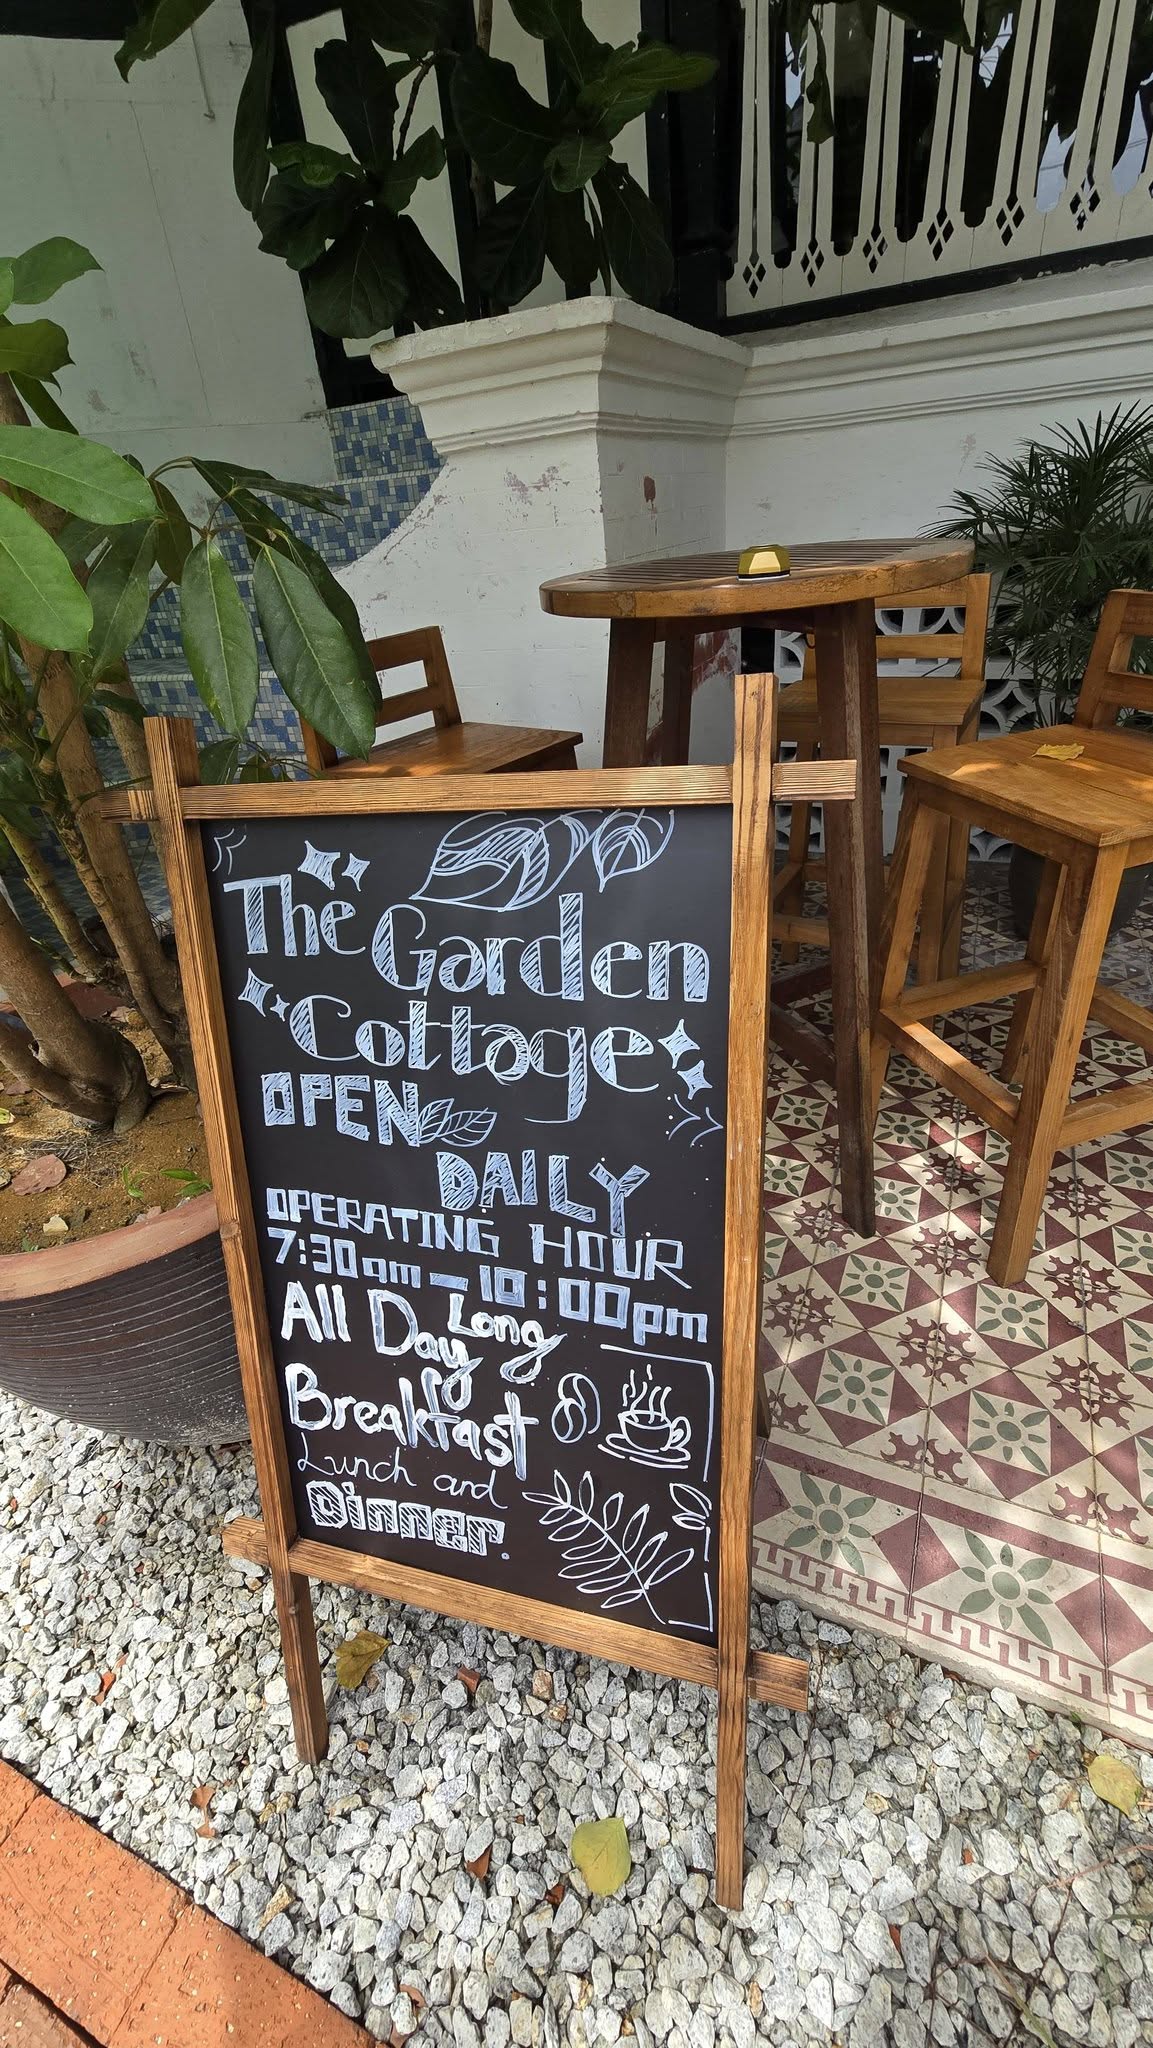 The Garden
Cottage
OPEN
DAILY
OPERATING HOUR
7:30am - 10:00pm
All Day Long
Breakfast
Lunch and
Dinner.